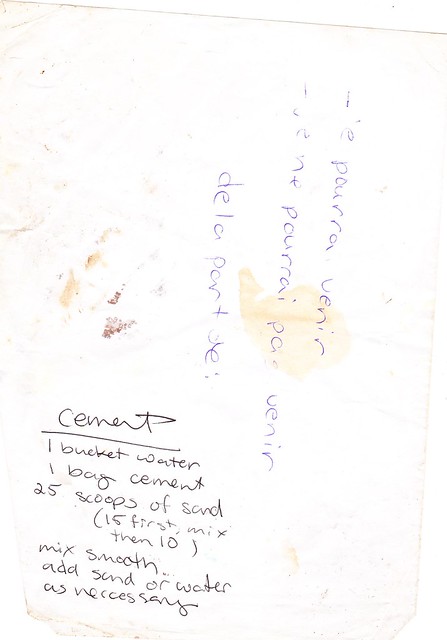 - je pourrai venir
- je ne pourrai pas venir
de la part de:
Cement
1 bucket water
1 bag cement
25 scoops of sand
(15 first, mix
then 10)
mix smooth...
add sand or water
as neccessary